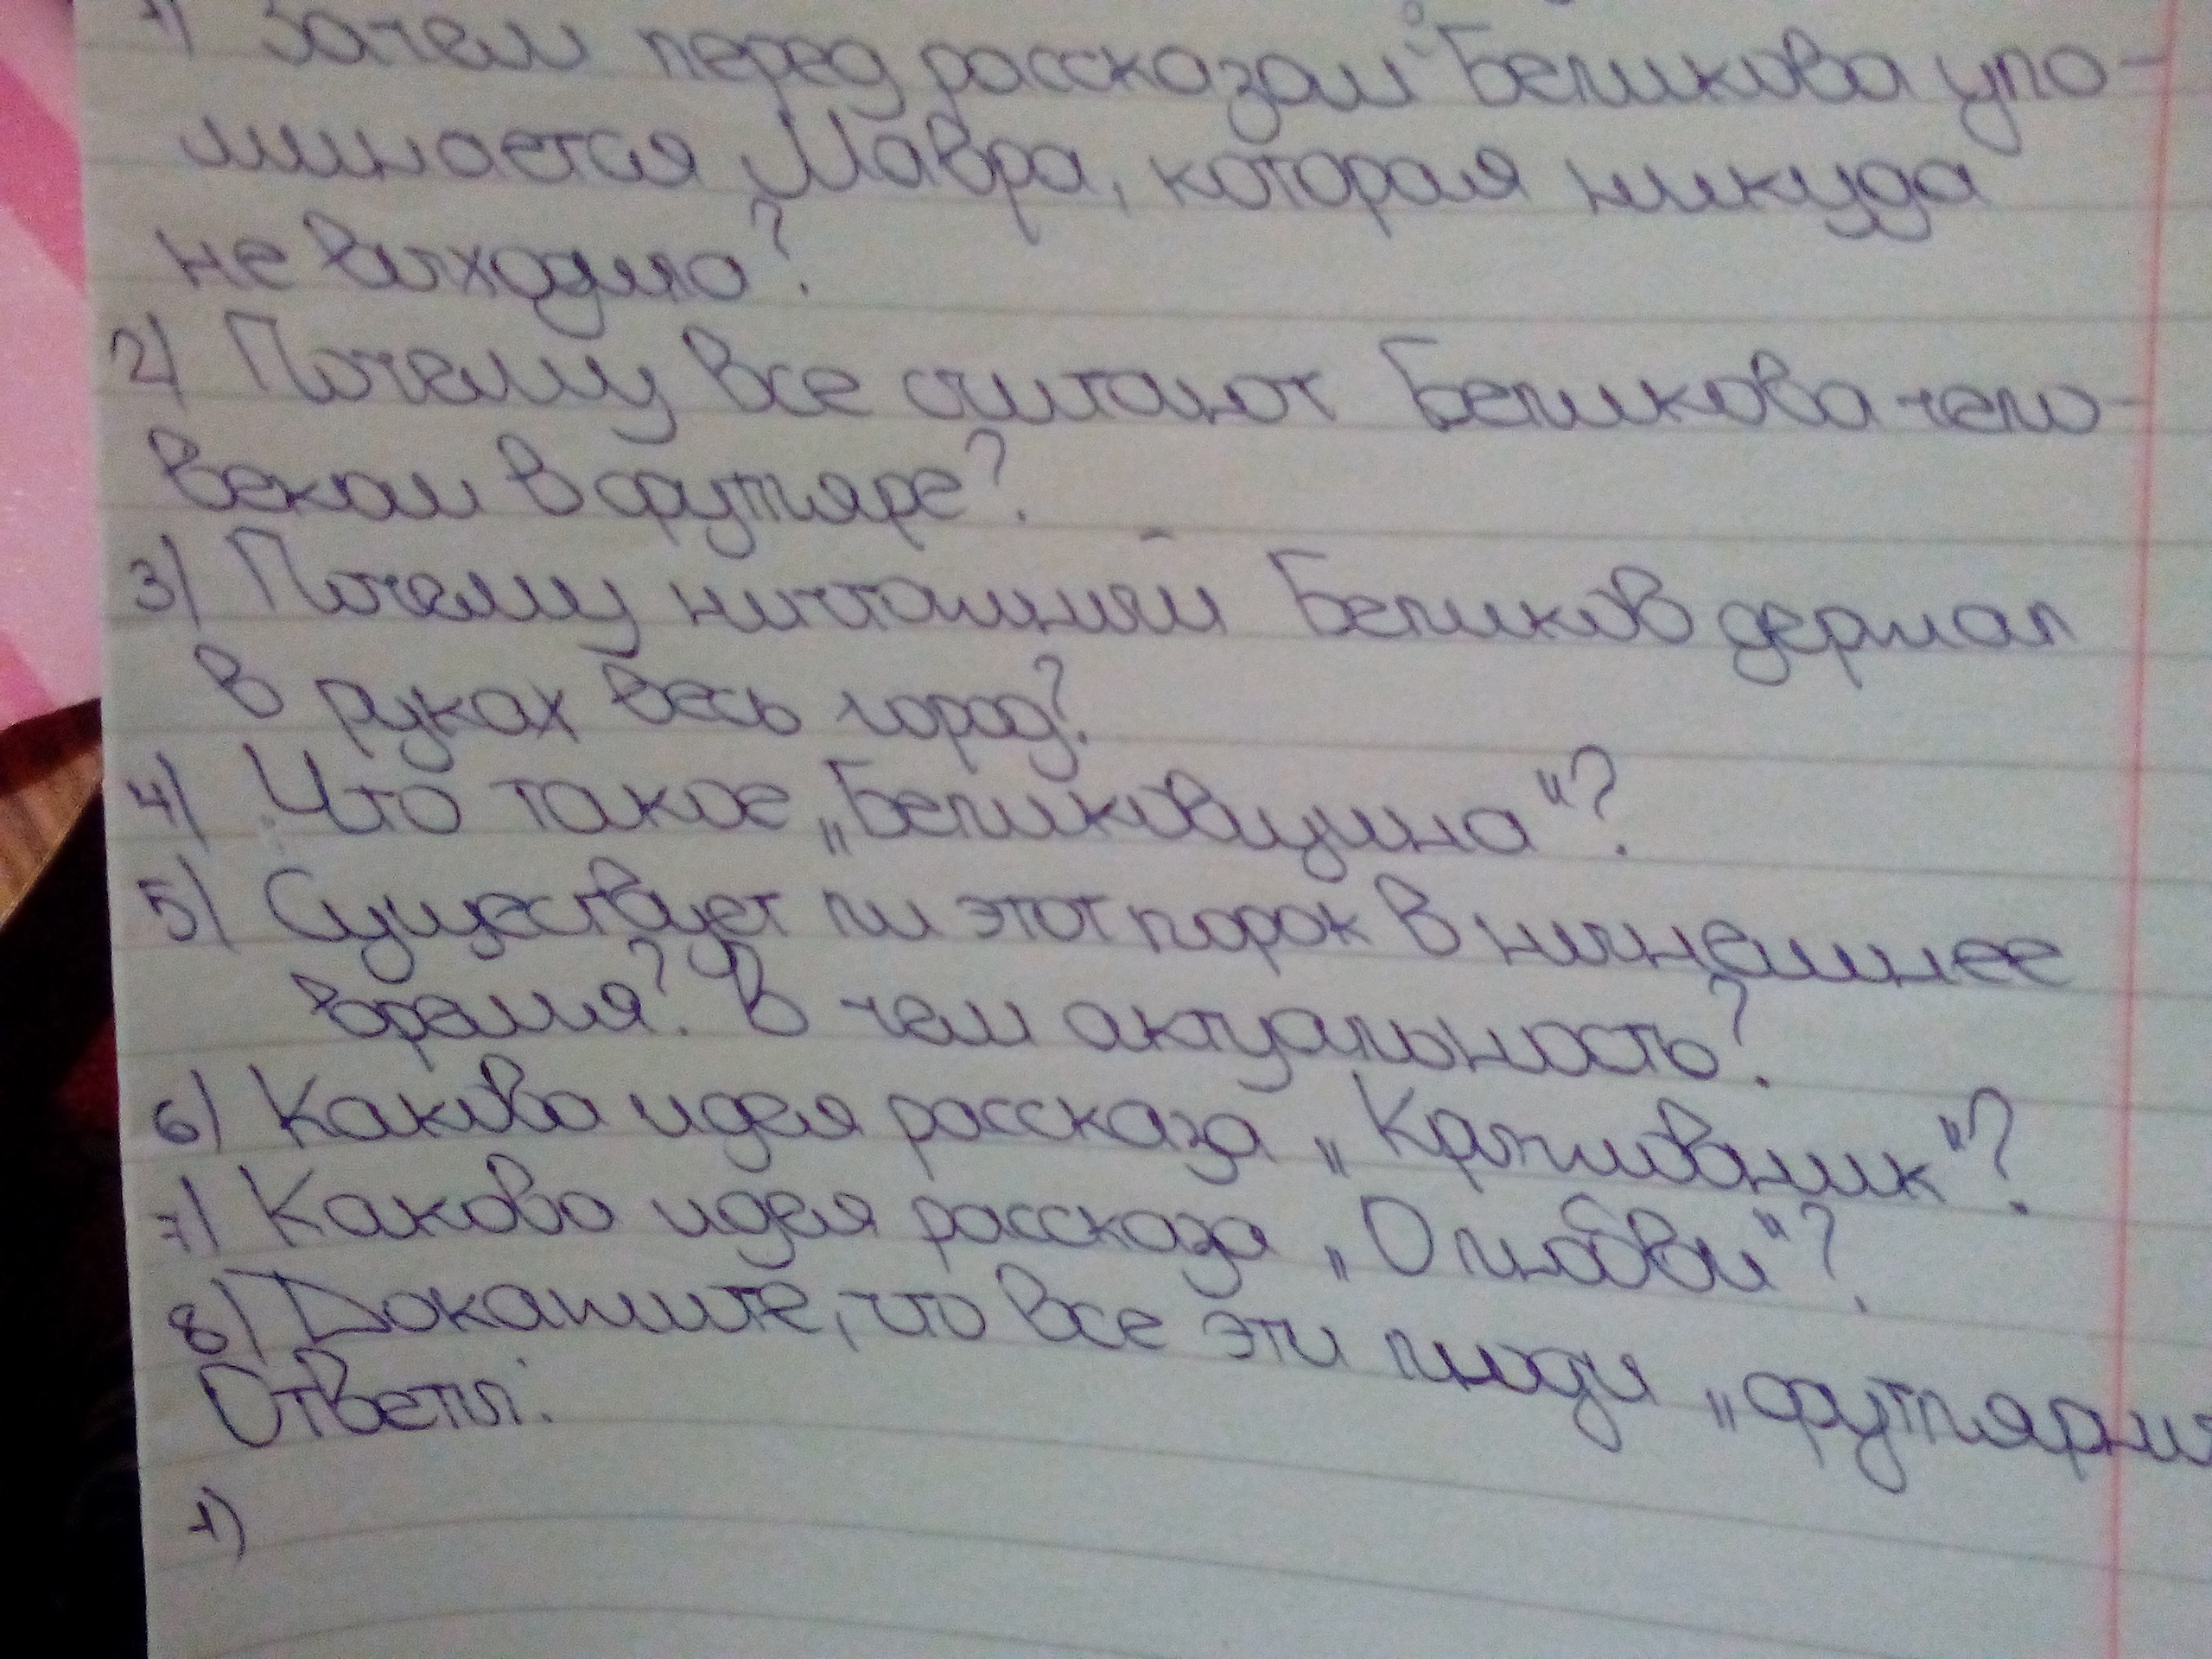 1) Зачем перед рассказом Беликова упо-
минается Мавра, которая никуда
не выходила?
2) Почему все считают Беликова чело-
веком в футляре?
3) Почему ничтожный Беликов держал
в руках весь город?
4) Что такое „Беликовщина"?
5) Существует ли этот порок в нынешнее
время? В чем актуальность?
6) Какова идея рассказа „Крыжовник"?
7) Какова идея рассказа „О любви"?
8) Докажите, что все эти люди „футлярны
Ответы:
1)